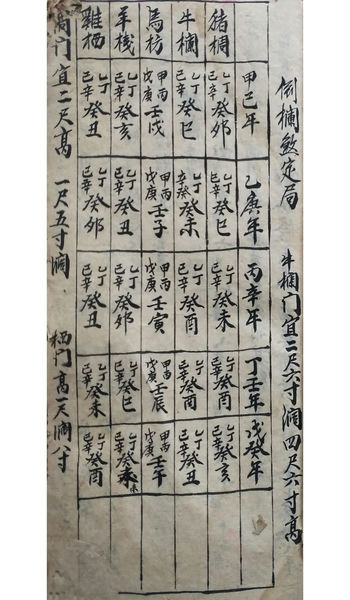 倒欄煞定局 牛欄门宜二尺六寸濶四尺六寸高
甲己年 乙庚年 丙辛年 丁壬年 戊癸年
猪椆 乙丁己辛癸卯 乙丁己辛癸巳 乙丁己辛癸未 乙丁己辛癸酉 乙丁己辛癸亥
牛欄 乙丁己辛癸巳 乙丁辛癸未 乙丁己辛癸酉 乙丁己辛癸酉 乙丁己辛癸丑
馬枋 甲丙戊庚壬戌 甲丙戊庚壬子 甲丙戊庚壬寅 甲丙戊庚壬辰 甲丙戊庚壬午
羊栈 乙丁己辛癸亥 乙丁己辛癸丑 乙丁己辛癸卯 乙丁己辛癸巳 乙丁己辛癸未
雞栖 乙丁己辛癸丑 乙丁己辛癸卯 乙丁己辛癸丑 乙丁己辛癸未 乙丁己辛癸酉
门宜二尺高 一尺五寸濶 栖门高一尺濶八寸